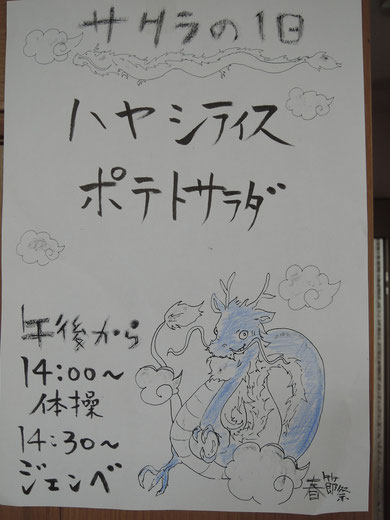 サクラの1日
ハヤシティス
ポテトサラダ
午後から
14:00～
体操
14:30～
ジェンベ
春節祭